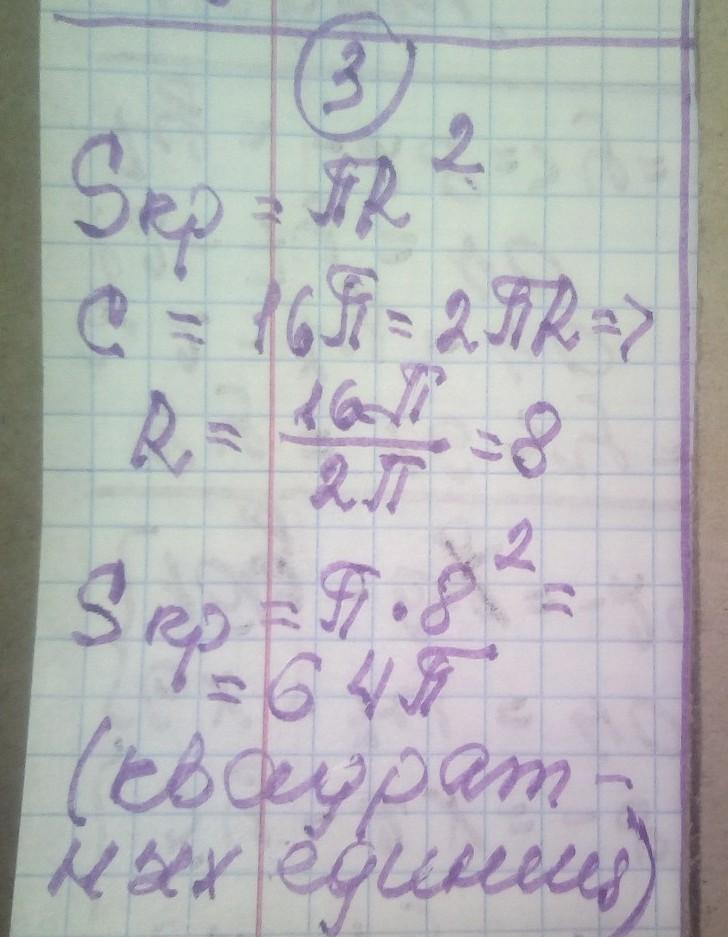 3
Sкр = πR²
C = 16π = 2πR =>
R = 16π/2π = 8
Sкр = π · 8² =
= 64π
(квадрат-
ных единиц)